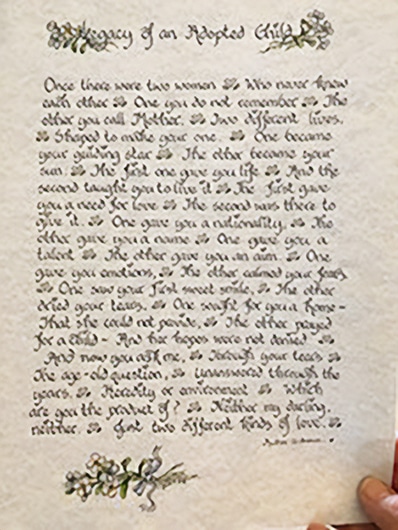 Legacy of an Adopted Child
Once there were two women Who never knew
each other One you do not remember The
other you call Mother. Two different lives,
Shaped to make your one. One became
your guiding star The other became your
sun. The first one gave you life And the
second taught you to live it The first gave
you a need for love The second was there to
give it. One gave you a nationality, The
other gave you a name One gave you a
talent The other gave you an aim. One
gave you emotions, The other calmed your fears
One saw your first sweet smile, The other
dried your tears, One sought for you a home–
That she could not provide, The other prayed
for a child– And her hopes were not denied
And now you ask me, Through your tears
The age-old question, Unanswered through the
years, Heredity or environment Which
are you the product of? Neither my darling,
neither. Just two different kinds of love.